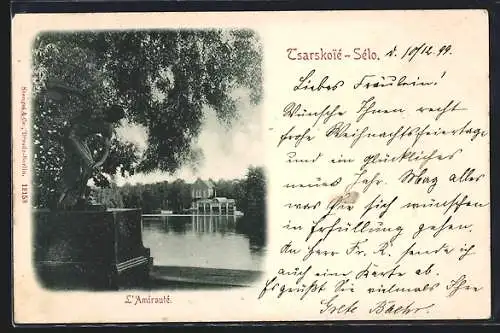 Tsarskoïé-Sélo. d. 10/12. 99.
Liebes Fräulein!
Wünsche Ihnen recht
frohe Weihnachtsfeiertage
und ein glückliches
neues Jahr. Mag alles
was Sie sich wünschen
in Erfüllung gehen.
An Herr Fr. R. sende ich
auch eine Karte ab.
Es grüßt Sie vielmals Ihre
Grete
L'Amirauté.
Stengel & Co., Dresde-Berlin. 12158